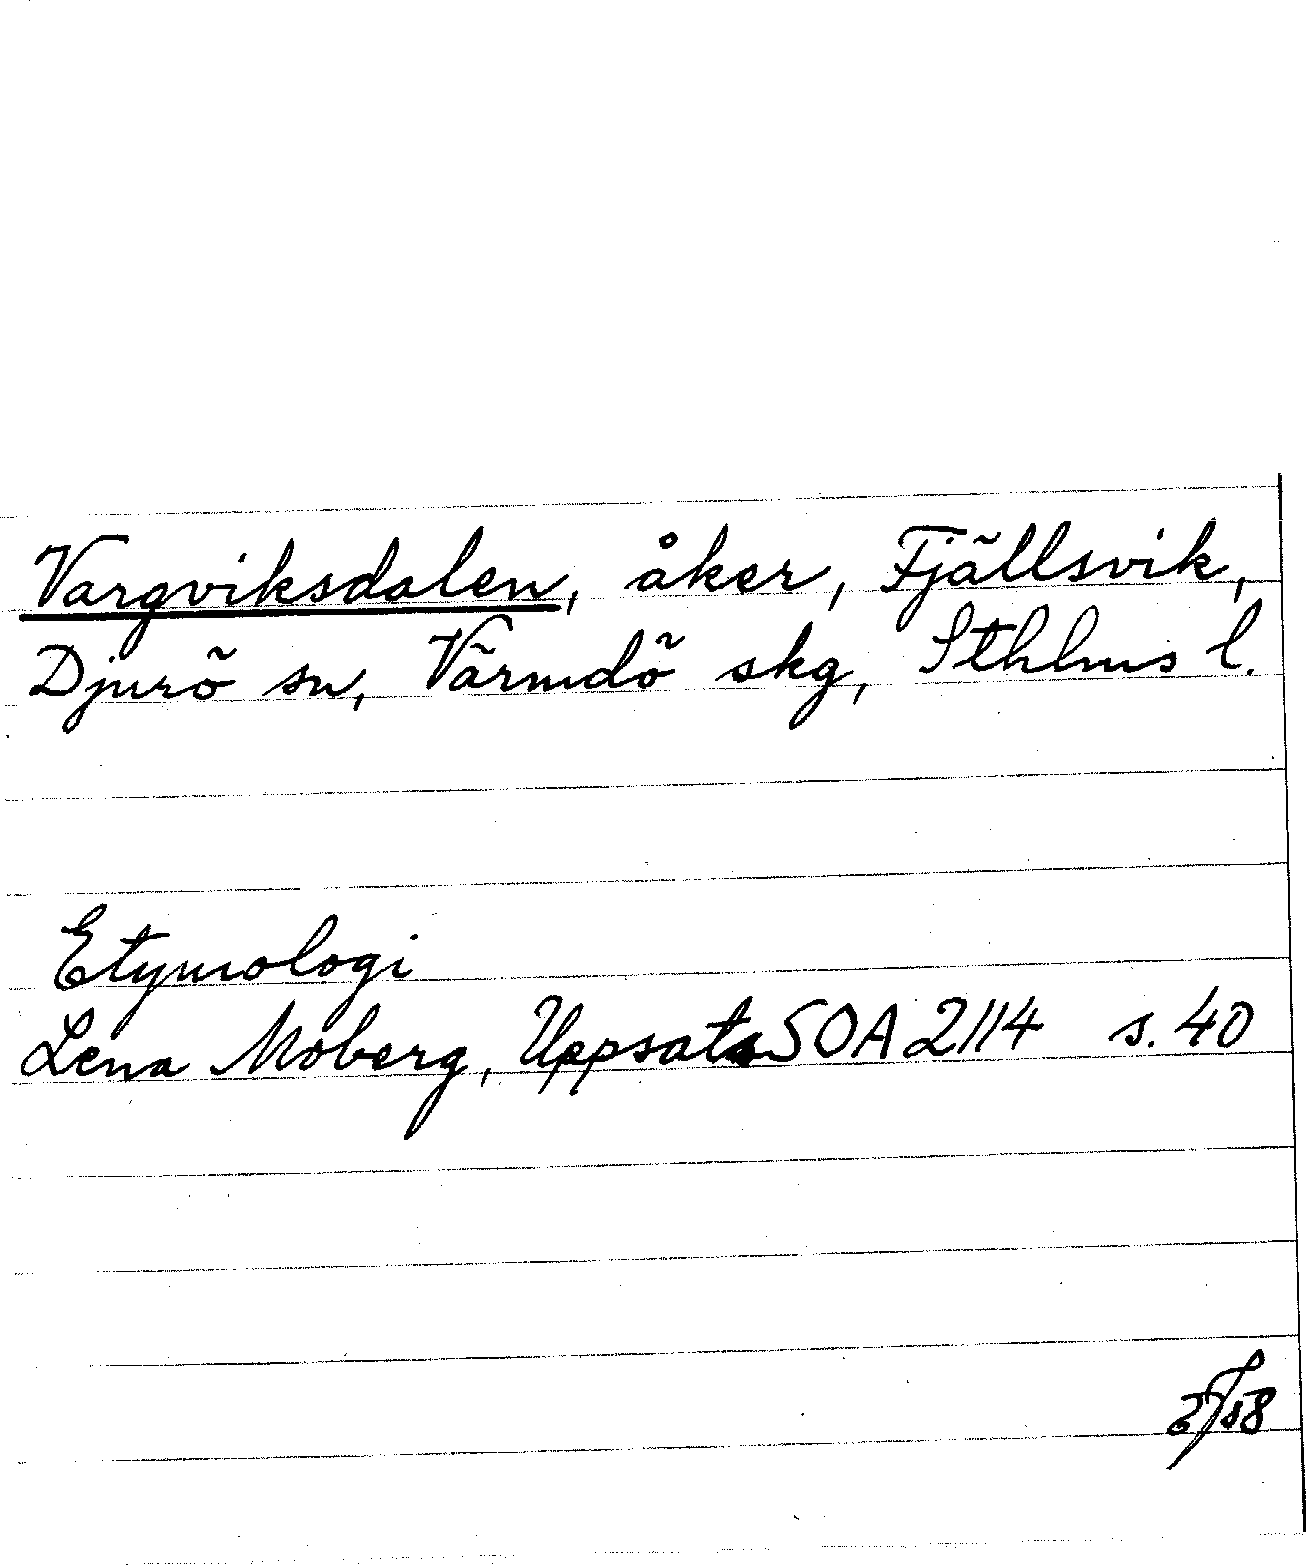 Vargviksdalen, åker, Fjällsvik,
Djurö sn, Värmdö skg, Sthlms l.
Etymologi
Lena Moberg, Uppsats SOA 2114 s. 40